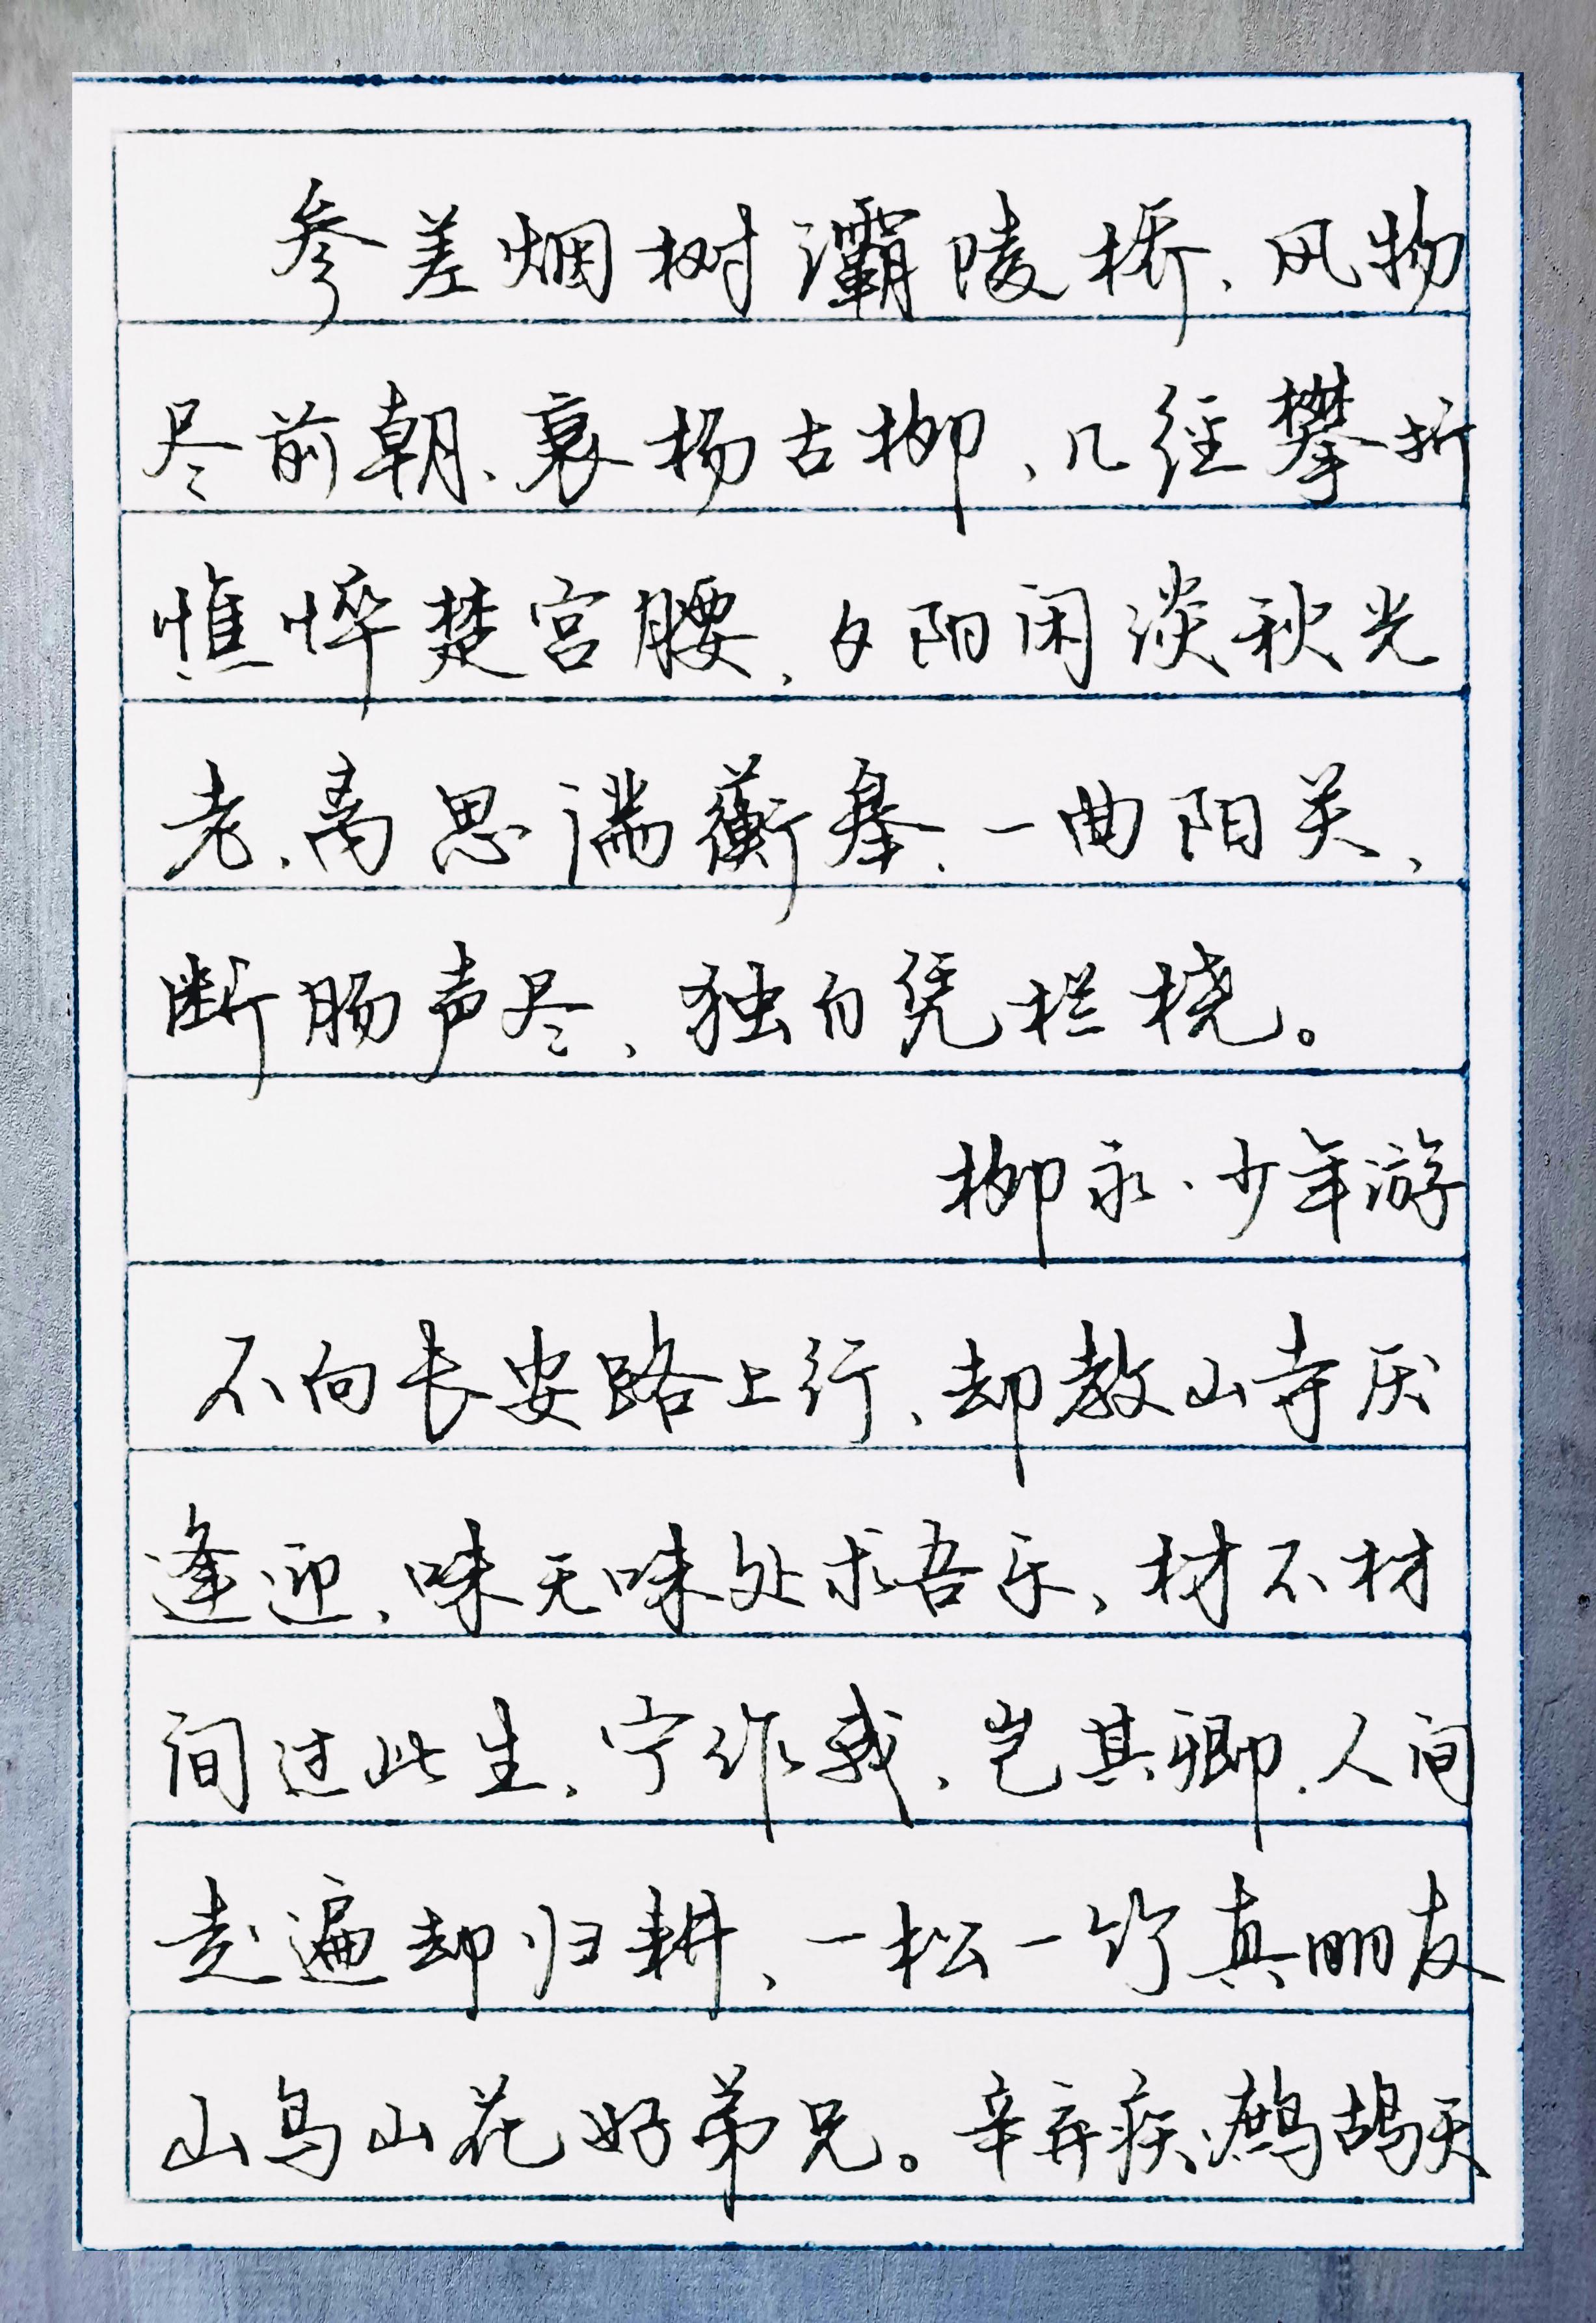 参差烟树灞陵桥、风物
尽前朝、衰杨古柳、几经攀折
憔悴楚宫腰、夕阳闲淡秋光
老、离思满蘅皋、一曲阳关、
断肠声尽、独自凭栏桡。
柳永·少年游
不向长安路上行、却教山寺厌
逢迎、味无味处求吾乐、材不材
间过此生、宁作我、岂其卿、人间
走遍却归耕、一松一竹真朋友
山鸟山花好弟兄。辛弃疾、鹧鸪天